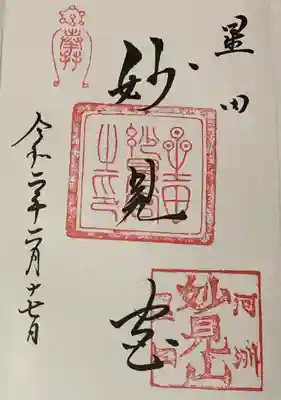 星田
妙見宮
令和二年二月十七日
河州
妙見山